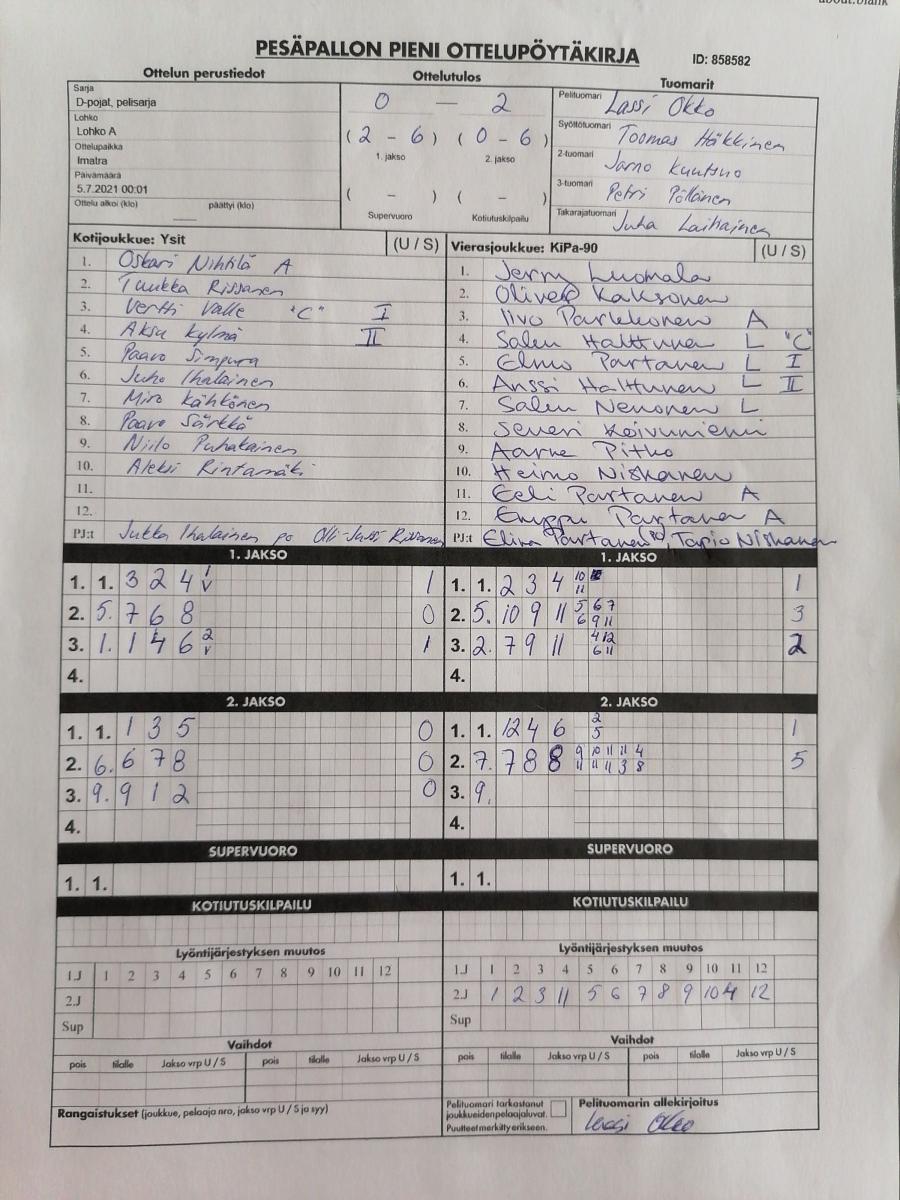 about:blank
PESÄPALLON PIENI OTTELUPÖYTÄKIRJA
ID: 858582
Ottelun perustiedot
Sarja
D-pojat, pelisarja
Lohko
Lohko A
Ottelupaikka
Imatra
Päivämäärä
5.7.2021 00:01
Ottelu alkoi (klo) päättyi (klo)
Ottelutulos
0 — 2
(2 - 6) (0 - 6)
1. jakso 2. jakso
( - ) ( - )
Supervuoro Kotiutuskilpailu
Tuomarit
Pelituomari Lassi Okko
Syöttötuomari Toomas Häkkinen
2-tuomari Jarno Kuutsuo
3-tuomari Petri Pöllänen
Takarajatuomari Juha Laihainen
Kotijoukkue: Ysit (U / S)
1. Oskari Nihtilä A
2. Tuukka Rissanen
3. Vertti Valle "C" I
4. Aksu Kylmä II
5. Paavo Simpura
6. Juho Ihalainen
7. Miro Kähkönen
8. Paavo Särkkä
9. Niilo Puhakainen
10. Aleksi Rintamäki
11.
12.
PJ:t Jukka Ihalainen po Olli-Jussi Rissanen
Vierasjoukkue: KiPa-90 (U / S)
1. Jerry Luomala
2. Oliver Kaksonen
3. Iivo Parkkonen A
4. Salen Halttunen L "C"
5. Elmo Partanen L I
6. Anssi Halttunen L II
7. Salen Nenonen L
8. Severi Koivuniemi
9. Aarne Pitko
10. Heimo Niskanen
11. Eeli Partanen A
12. Emppu Partanen A
PJ:t Elina Partanen, Tapio Niskanen
1. JAKSO
1. 1. 3 2 4 1 V 1
2. 5. 7 6 8 0
3. 1. 1 4 6 2 V 1
4.
2. JAKSO
1. 1. 1 3 5 0
2. 6. 6 7 8 0
3. 9. 9 1 2 0
4.
SUPERVUORO
1. 1.
KOTIUTUSKILPAILU
Lyöntijärjestyksen muutos
1.J 1 2 3 4 5 6 7 8 9 10 11 12
2.J
Sup
Vaihdot
pois tilalle Jakso vrp U / S pois tilalle Jakso vrp U / S
Rangaistukset (joukkue, pelaaja nro, jakso vrp U / S ja syy)
1. JAKSO
1. 1. 2 3 4 10 11 1
2. 5. 10 9 11 5 6 7 6 9 11 3
3. 2. 7 9 11 4 12 6 11 2
4.
2. JAKSO
1. 1. 12 4 6 2 5 1
2. 7. 7 8 8 9 10 11 11 4 11 11 11 3 8 5
3. 9.
4.
SUPERVUORO
1. 1.
KOTIUTUSKILPAILU
Lyöntijärjestyksen muutos
1.J 1 2 3 4 5 6 7 8 9 10 11 12
2.J 1 2 3 11 5 6 7 8 9 10 4 12
Sup
Vaihdot
pois tilalle Jakso vrp U / S pois tilalle Jakso vrp U / S
Pelituomari tarkastanut
joukkueiden pelaajaluvat.
Puutteet merkitty erikseen.
Pelituomarin allekirjoitus
Lassi Okko